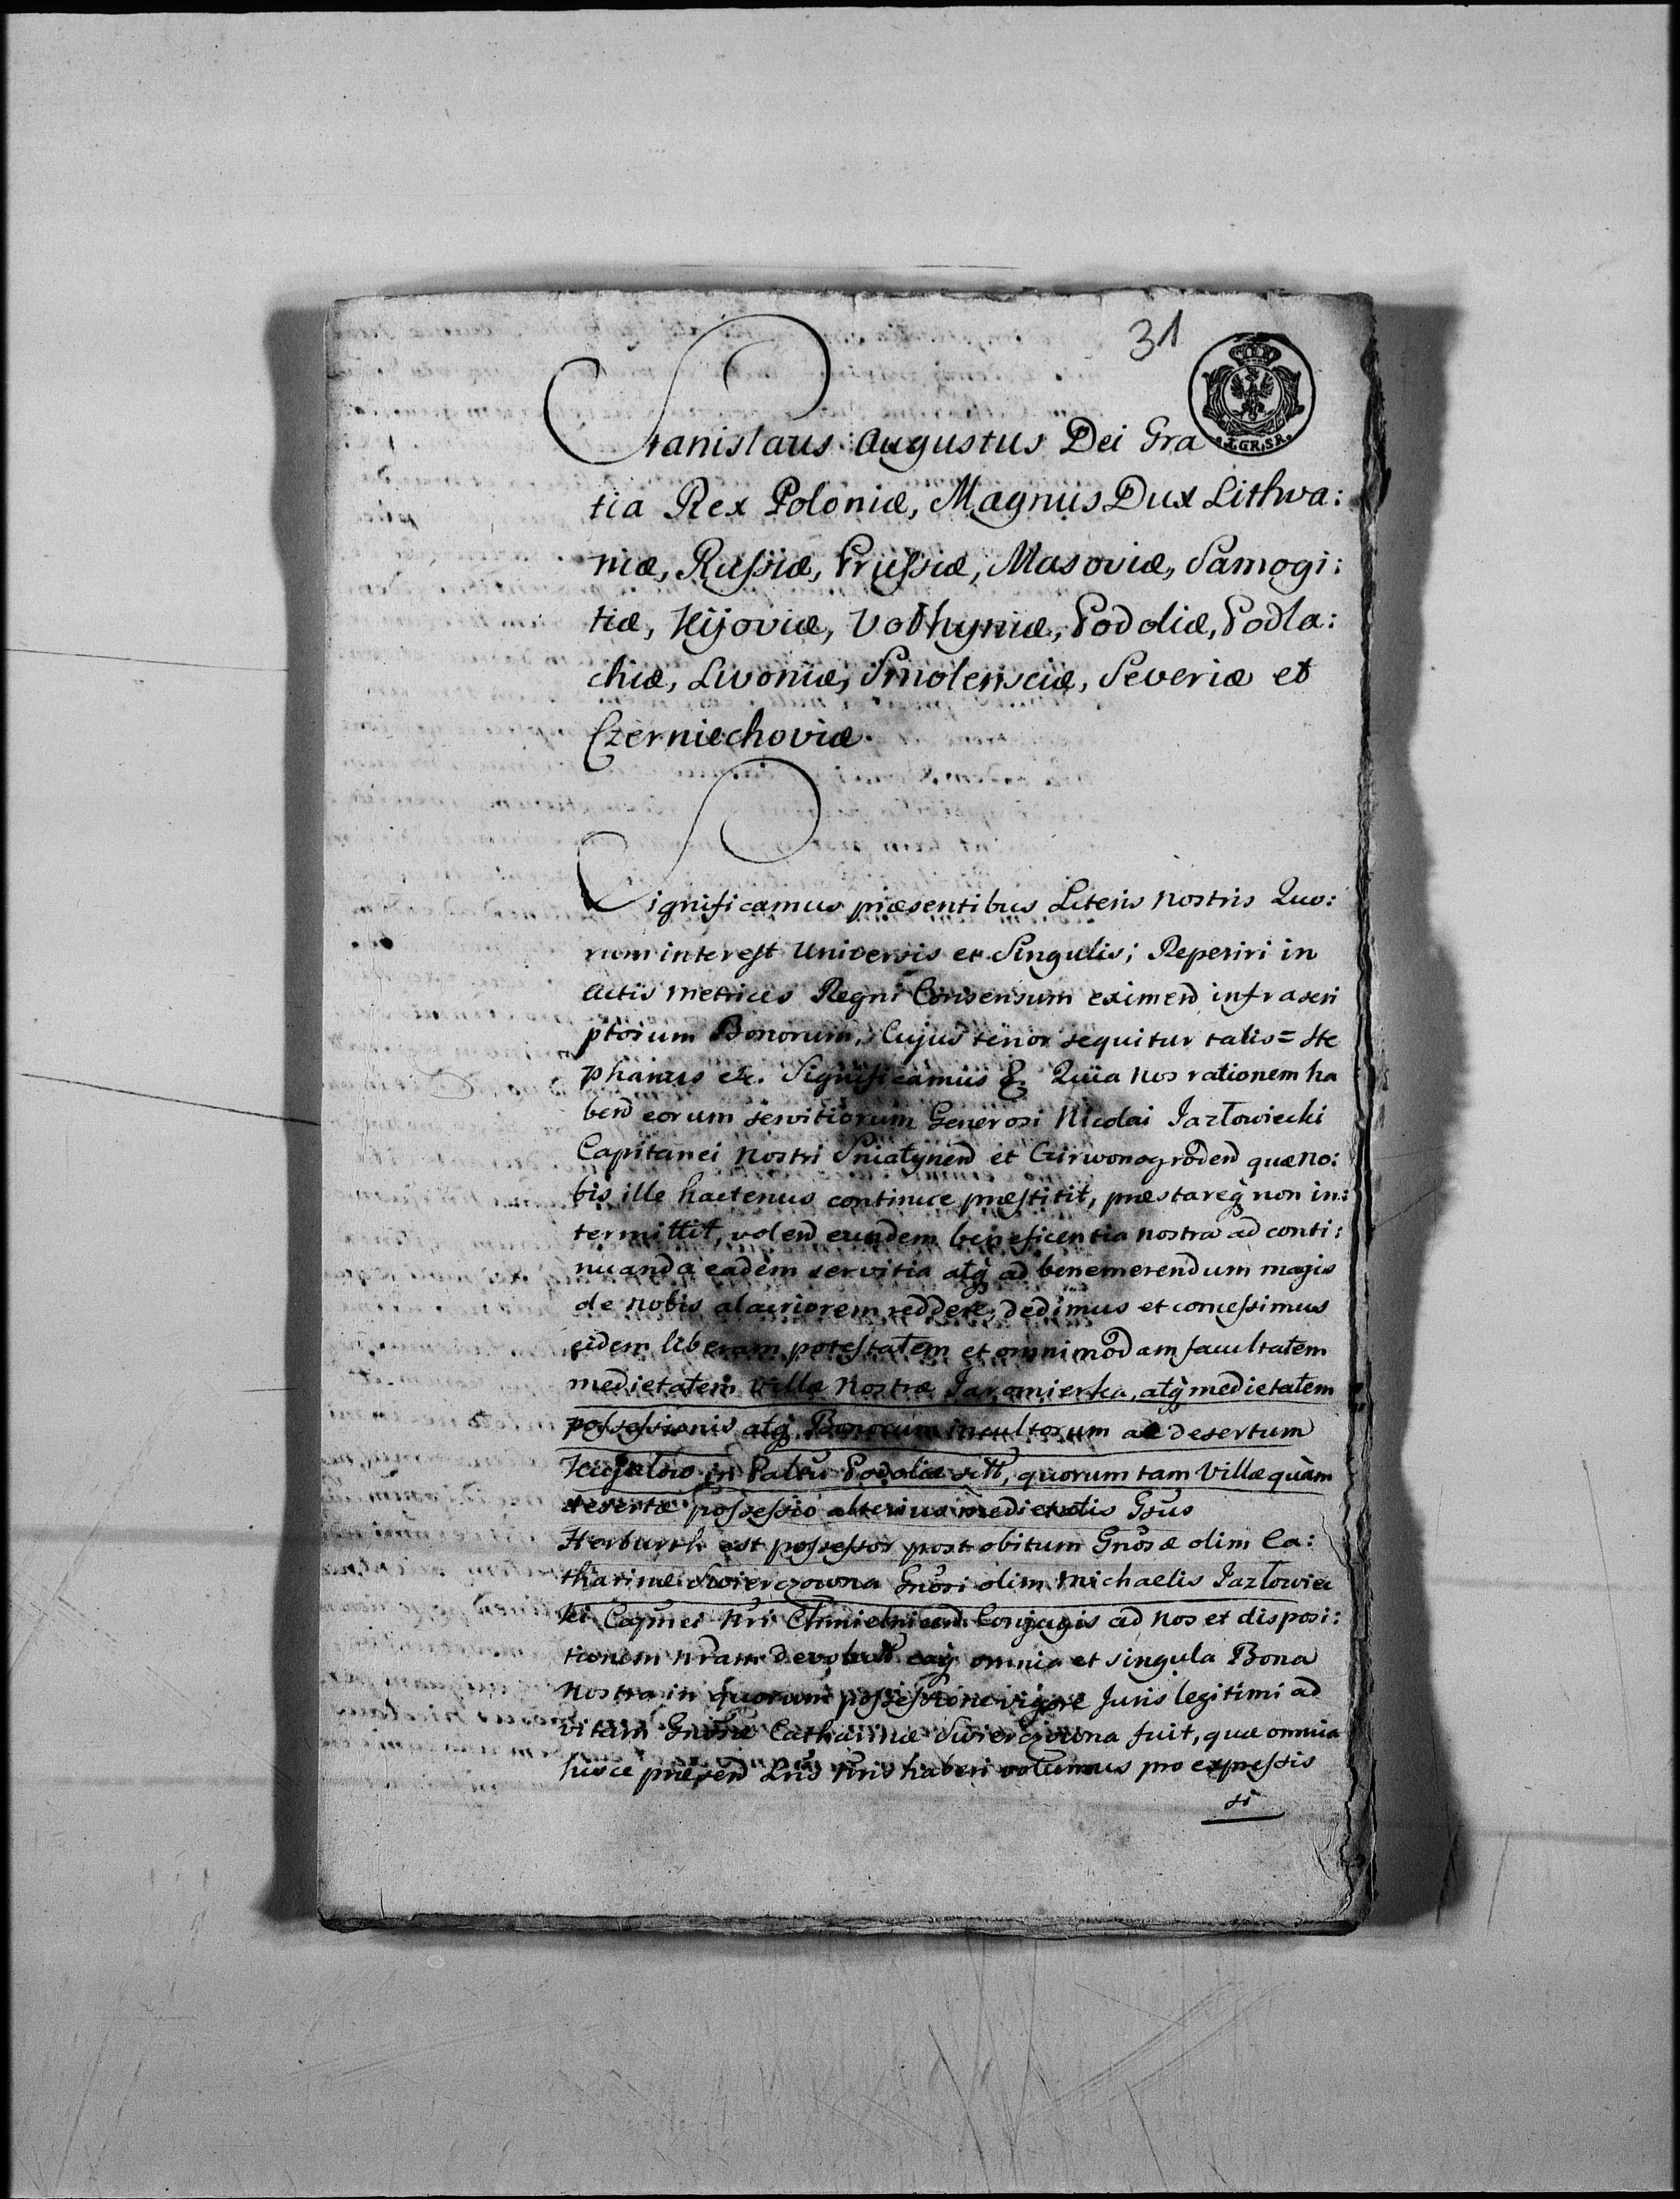 31
4.GR.SR.
Stanislaus Augustus Dei Gra
tia Rex Poloniæ, Magnus Dux Lithva:
niæ, Russiæ, Prussiæ, Masoviæ, Samogi:
tiæ, Kijoviæ, Volhyniæ, Podoliæ, Podla:
chiæ, Livoniæ, Smolensciæ, Severiæ et
Czerniechoviæ.
Significamus præsentibus Literis Nostris Quo:
rum interest Universis et Singulis; Reperiri in
Actis Metrices Regni Consensum eximend infrascri
ptorum Bonorum, Cujus tenor sequitur talis = Ste
phanus etc. Significamus & Quia Nos rationem ha
bend eorum servitiorum Generosi Nicolai Jazłowiecki
Capitanei Nostri Sniatynend et Czirwonogrodend quæ no:
bis ille hactenus continuè præstitit, præstareq non in:
termittit, volend eundem beneficentia nostra ad conti:
nuanda eadem servitia atq ad benemerendum magis
de nobis alacriorem reddere, dedimus et concessimus
eidem liberam potestatem et omnimodam facultatem
medietatem Villæ Nostræ Jaromierka, atq medietatem
possessionis atq Bonorum incultorum ac desertum
in Paltu Podoliæ sitt, quorum tam Villæ quàm
desertæ possessio alterius medietatis Gsus
Herburth est possessor post obitum Gnosæ olim Ca:
tharinæ Swierczowna Gnosi olim Michaelis Jazłowiec
ki Capnei Nri Chmielnicend Conjugis ad Nos et disposi:
tionem nram devolutt eaq omnia et singula Bona
Nostra in quorum possessione vigore Juris legitimi ad
vitam Gnosæ Catharinæ Swierczowna fuit, quæ omnia
hisce præsend Lris Nris haberi volumus pro expressis
si